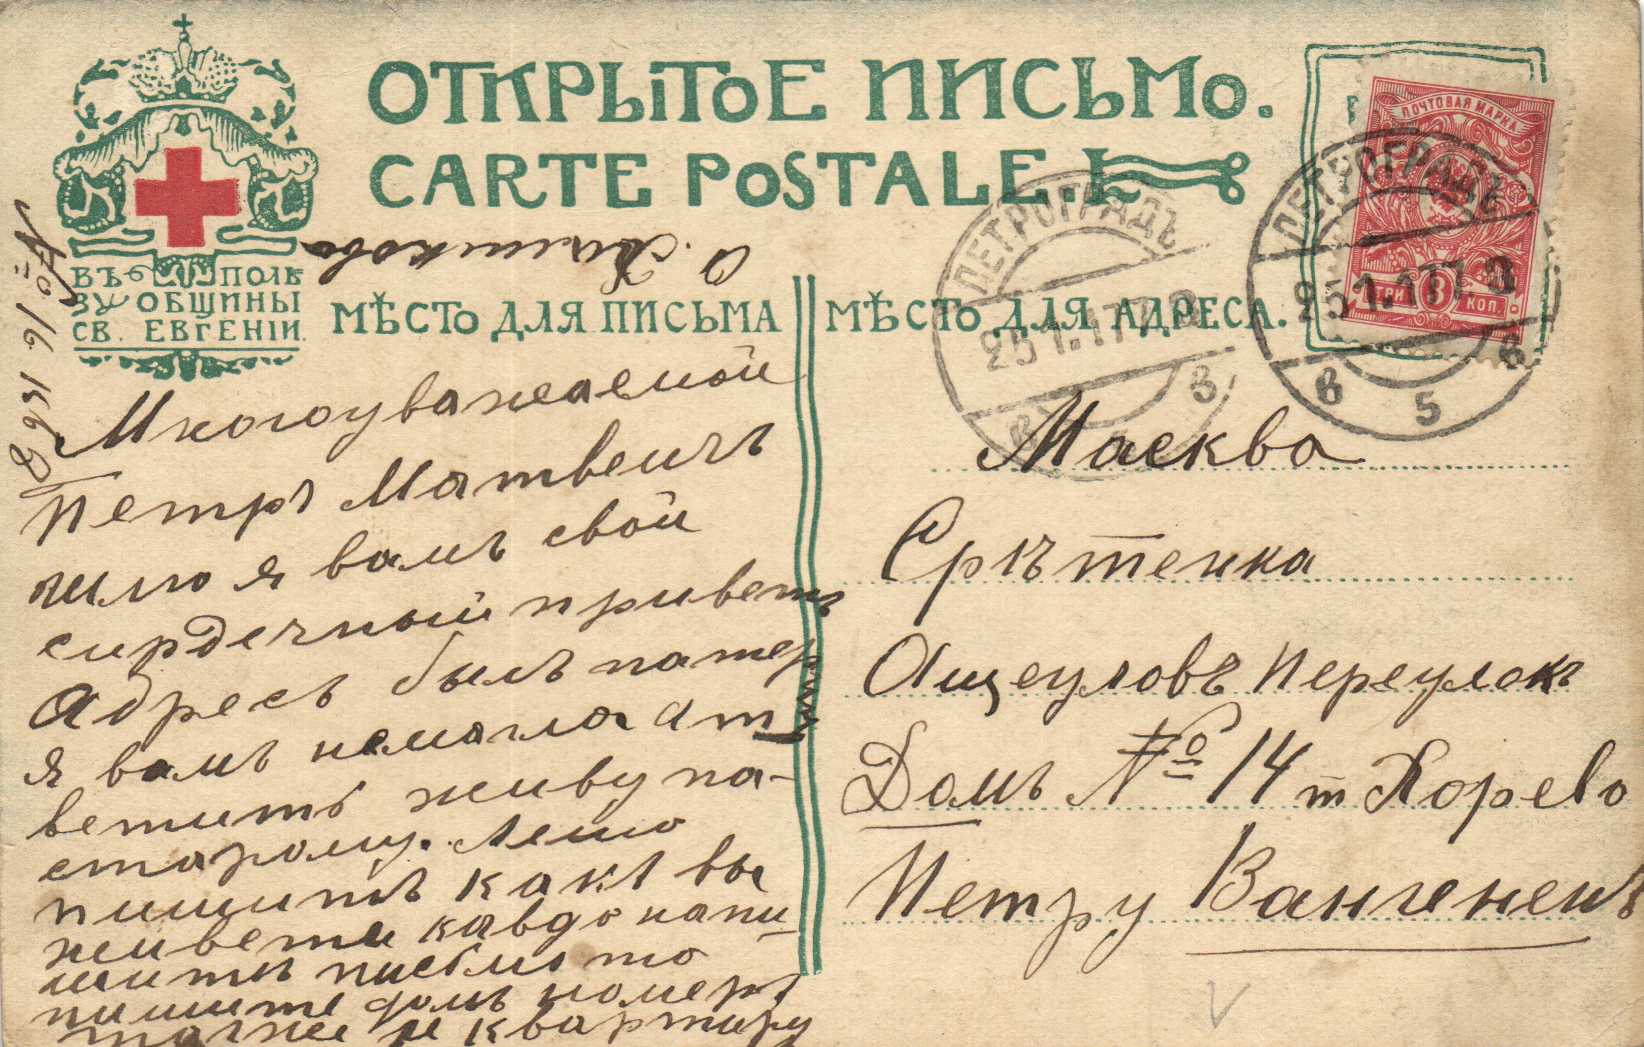 ОТКРЫТОЕ ПИСЬМО.
CARTE POSTALE.
ВЪ ПОЛЬ
ЗУ ОБЩИНЫ
СВ. ЕВГЕНІИ.
МѢСТО ДЛЯ ПИСЬМА
МѢСТО ДЛЯ АДРЕСА.
ПОЧТОВАЯ МАРКА
ТРИ 3 КОП.
ПЕТРОГРАДЪ
25 1.17 7
ПЕТРОГРАДЪ
25 1.17 7
в 5 в
Многоуважаемой
Петръ Матвеичъ
шлю я вамъ свой
сирдечный приветъ
Адресъ былъ патерѣнъ
я вамъ немагла ат
ветить живу па-
старому.
пишить какъ вы
живети кавдо напи
шить письмо то
пишите домъ номеръ
тагже и квартиру
Масква
Срѣтенка
Ащеуловъ Переулокъ
Домъ № 14 т Хорево
Петру Вангененъ